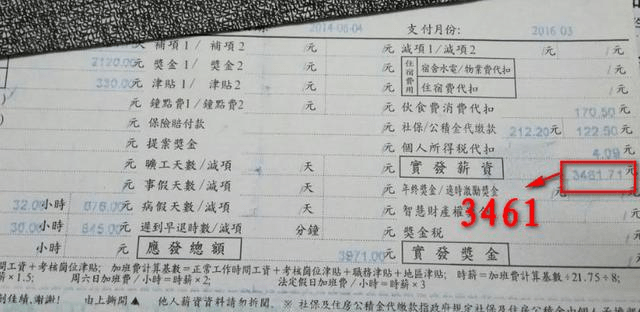 2014-06-04 支付月份: 2016 03
補項1/ 補項2 元/ 元 減項1/減項2 /元 /元
2120.00元 獎金1/ 獎金2 元/ 元 住宿費用 宿舍水電/物業費代扣 元
330.00元 津貼1/ 津貼2 元/ 元 住宿費代扣 元
元 鐘點費1/鐘點費2 元/ 元 伙食費消費代扣 170.50元
元 保險賠付款 元 社保/公積金代繳款 212.20元/ 122.50元
元 提案獎金 元 個人所得稅代扣 4.09元
元 曠工天數/減項 天/ 元 實發薪資 3461.71元
元 事假天數/減項 天/ 元 年終獎金/適時激勵獎金 /元
32.00小時 676.00元 病假天數/減項 天/ 元 智慧財產權 3461
30.00小時 845.00元 遲到早退時數/減項 分鐘/ 元 獎金稅 元
小時 元 應發總額 3971.00元 實發獎金 元
間工資+考核崗位津貼; 加班費計算基數=正常工作時間工資+考核崗位津貼+職務津貼+地區津貼; 時薪=加班費計算基數÷21.75÷8;
×1.5; 周六日加班費/小時=時薪×2; 法定假日加班費/小時=時薪×3
創佳績,謝謝! 由上撕開▲ 他人薪資資料請勿拆閱. ※ 社保及住房公積金代繳款指政府規定社保及住房公積金由個人